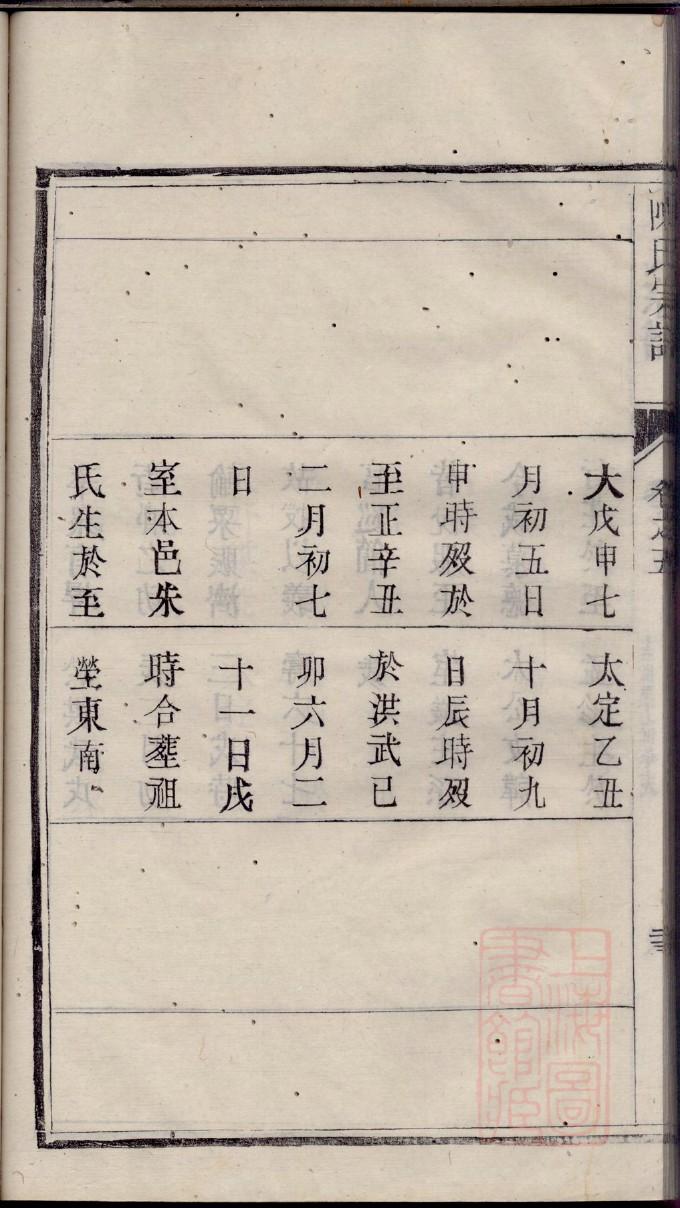 陳氏宗譜
卷之五
大戊申七
月初五日
申時歿於
至正辛丑
二月初七
日
室本邑朱
氏生於至
太定乙丑
十月初九
日辰時歿
於洪武己
卯六月二
十一日戌
時合塟祖
塋東南
上海圖
書館藏